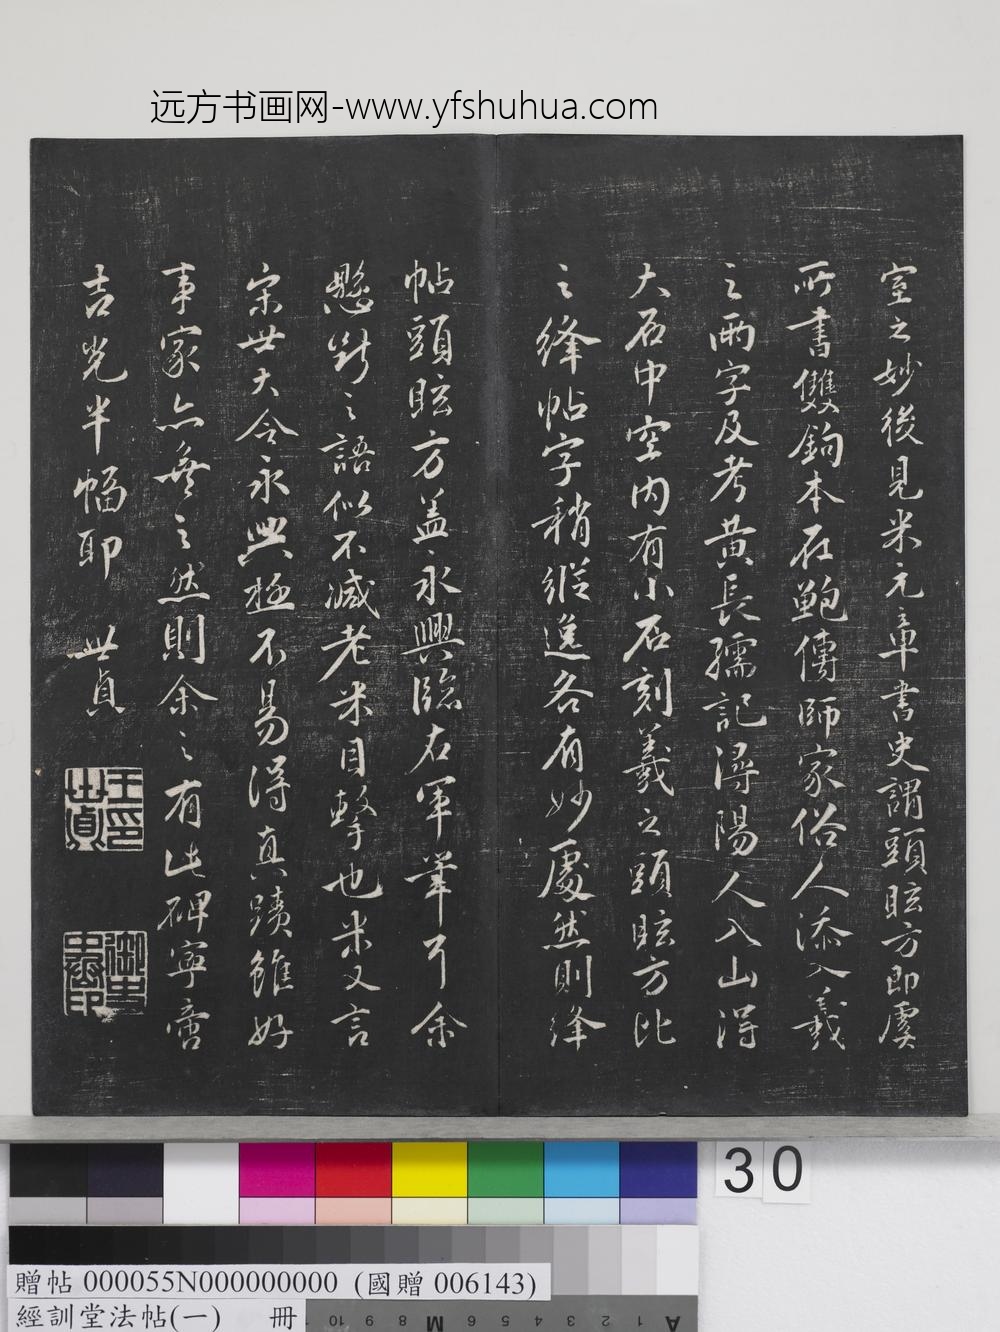 远方书画网-www.yfshuhua.com
室之妙後見米元章書史謂頭眩方即虞
所書雙鉤本在鮑傳師家俗人添入羲
之兩字及考黄長孺記潯陽人入山得
大石中空内有小石刻羲之頭眩方比
之絳帖字稍縱逸各有妙處然則絳
帖頭眩方盖永興臨右軍筆耳余
懸斷之語似不減老米目擊也米又言
宋世大令永興極不易得真蹟雖好
事家亦無之然則余之有此碑寧啻
吉光半幅耶 世貞
王世貞印
御史中丞之印
30
贈帖 000055N000000000 (國贈 006143)
經訓堂法帖(一) 冊
10 9 8 7 M 6 5 4 3 2 1 A